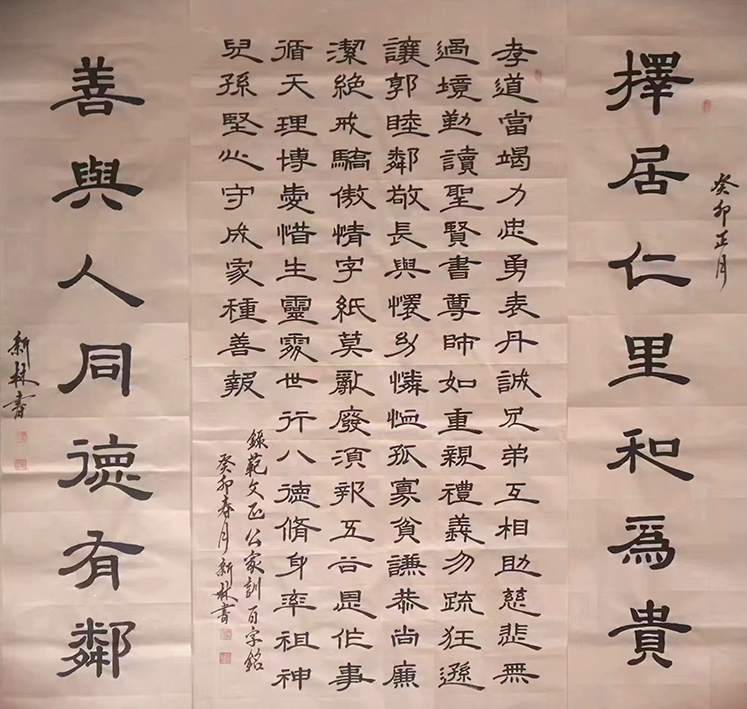 擇居仁里和爲貴
癸卯正月
孝道當竭力忠勇表丹誠兄弟互相助慈悲無
過境勤讀聖賢書尊師如重親禮義勿疏狂遜
讓郭睦鄰敬長與懷幼憐恤孤寡貧謙恭尚廉
潔絕戒驕傲情字紙莫亂廢須報五谷恩作事
循天理博愛惜生靈處世行八德脩身率祖神
兒孫堅心守成家種善報
錄範文正公家訓百字銘
癸卯春月新林書
善與人同德有鄰
新林書